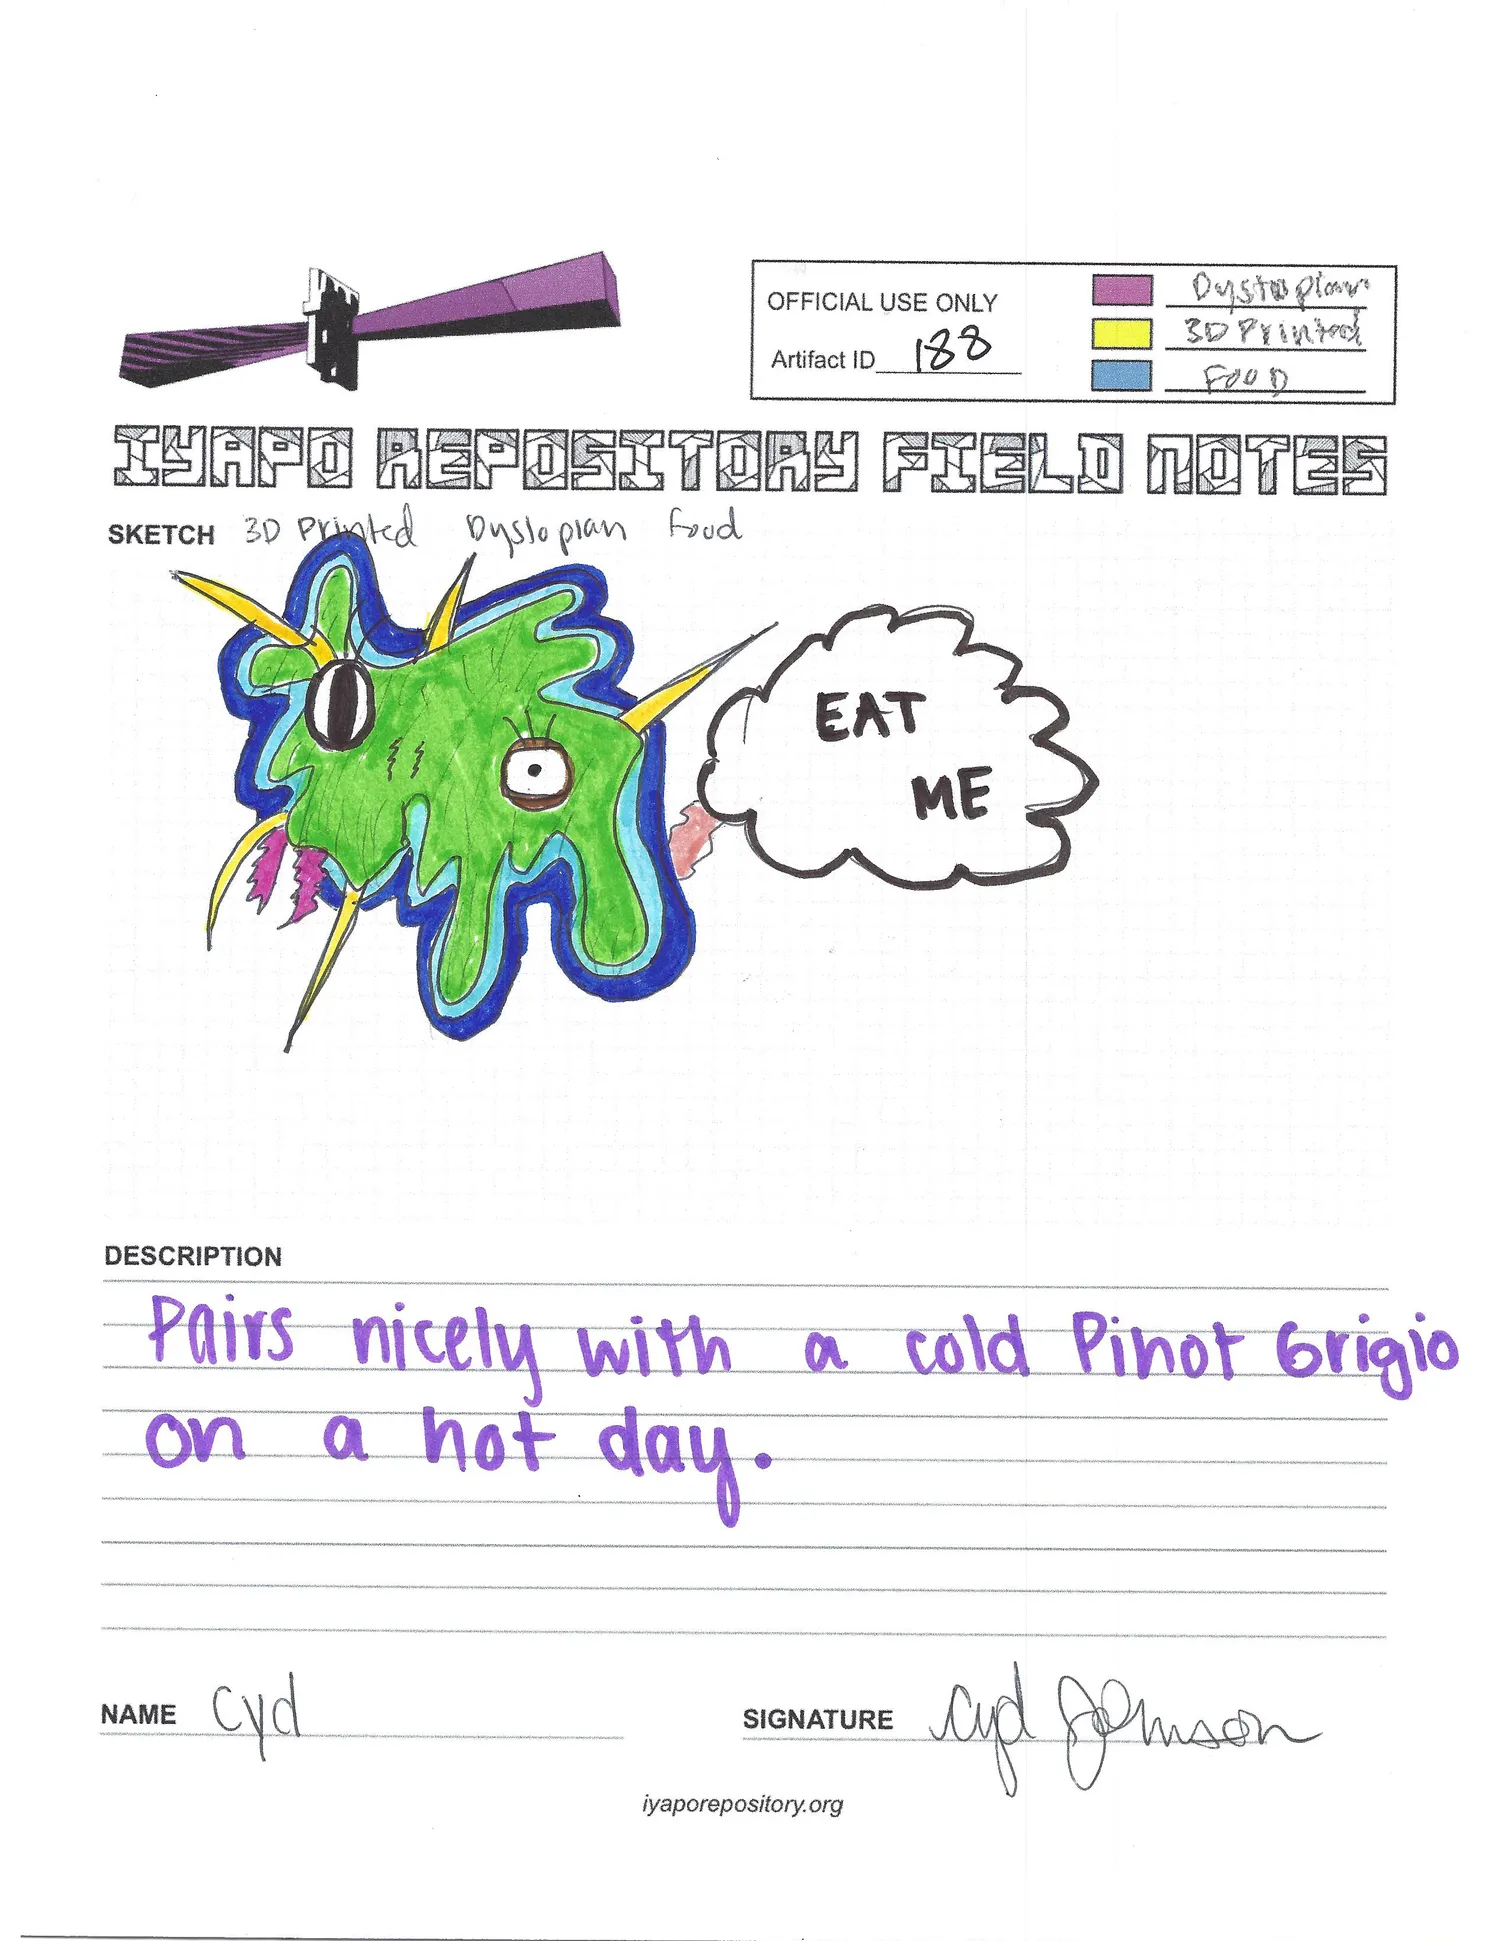 OFFICIAL USE ONLY
Artifact ID 188
Dystopian
3D Printed
FOOD
IYAPO REPOSITORY FIELD NOTES
SKETCH 3D Printed Dystopian Food
EAT
ME
DESCRIPTION
Pairs nicely with a cold Pinot Grigio
on a hot day.
NAME Cyd
SIGNATURE Cyd Johnson
iyaporepository.org